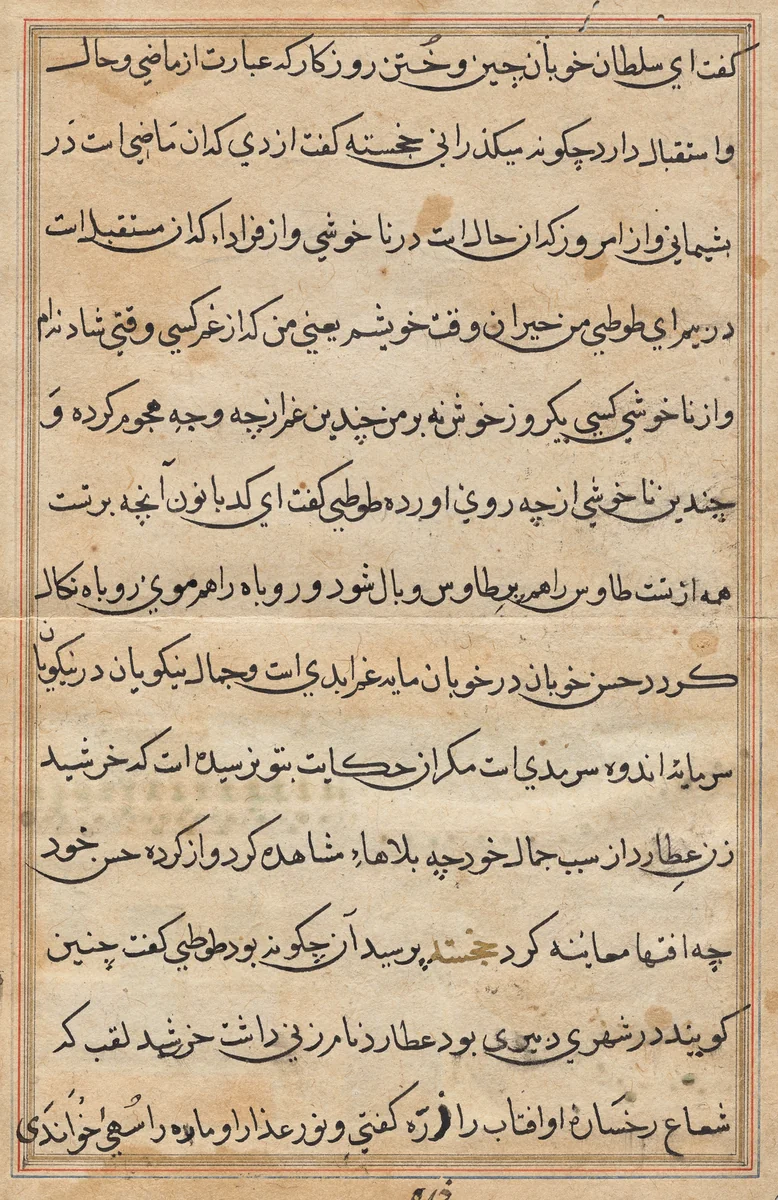 کفت اي سلطان خوبان چین و خُتن روزکار که عبارت از ماضي و حال
واستقبال دارد چکونه میکذراني خجسته کفت از دي کدان مَاضي است دَر
بشیماني و از امروز کدان حال است در نا خوشي و از فرداء کدان مستقبل است
در بیم اي طوطي من حیران وقت خویشم یعني من کداز غم کسي وقتي شاد نه ام
و از نا خوشي کسي یکروز خوش نه بر من چندین غم از چه وجه هجوم کرده وَ
چندین نا خوشي از چه روي اورده طوطي کفت اي کدبانون آنچه برتست
همه از تست طاوس را هم پرِ طاوس وبال شود و روباه را هم موي روباه نکال
کردد حسن خوبان در خوبان مایه غم ابدي است و جمال نیکویان در نیکویان
سرمایۀ اندوه سرمدي است مکر ان حکایت بتو نرسیده است که خرشید
زن عِطارد از سبب جمال خود چه بلاهاء مشاهده کرد و از کرده حسن خود
چه افتها معاینه کرد خجسته پرسید آن چکونه بود طوطي کفت چنین
کویند در شهري دبیری بود عطارد نام زني داشت خرشید لقب که
شعاع رخسَارۀ او افتاب را ذرّه کفتي و نور عذار او ماه را سُهيٰ خوَاندَی